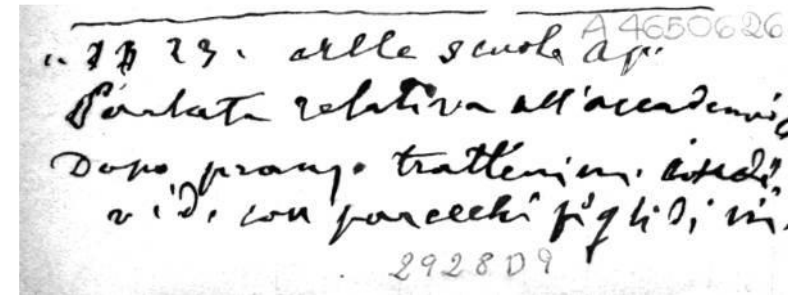 A4650626
23. alle scuole ap.
Parlata relativa all'accademia
Dopo pranzo trattenim.
vid. con parecchi figli di
2928D9